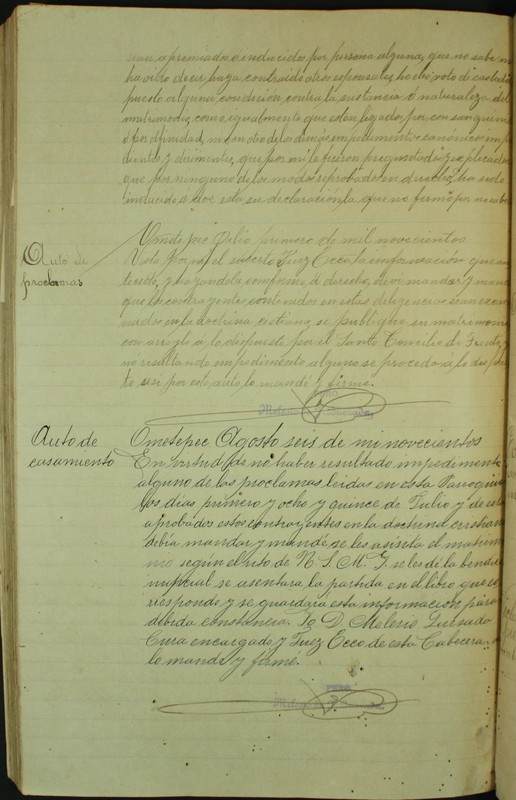 sean apremiados é inducidos por persona alguna, que no sabe ni
ha oido decir haya contraido otros esponsales, hecho voto de castidad
puesto alguna condición contra la sustancia ó naturaleza del
matrimonio, como igualmente que esten ligados por consanguini
ó por afinidad, ni con otro de los demás impedimentos canónicos impe
dientes y dirimentes, que por mi le fueron preguntados y esplicados
que por ninguno de los modos reprobados en derecho, ha sido
inducido á dar esta su declaración, la que no firmó por no saber
Auto de
proclamas
Ometepec Julio primero de mil novecientos
Vista por mi el suscrito Juez Ecco la información que an
tecede, y hayandola conforme á derecho, debi mandar y mandé
que los contrayentes contenidos en estas diligencias sean exami
nados en la doctrina cristiana, se publique su matrimonio
con arreglo á lo dispuesto por el Santo Concilio de Trento, y
no resultando impedimento alguno se proceda á lo dispues
to así por este auto, lo mandé y firmé.
Auto de
casamiento
Ometepec Agosto seis de mi novecientos
En virtud de no haber resultado impedimento
alguno de las proclamas leidas en esta Parroquia
los dias primero y ocho y quince de Julio y de estar
aprobados estos contrayentes en la doctrina cristiana
debia mandar y mandé se les asista el matrimo
nio según el rito de N. S. M. I. se les dé la bendición
nupcial se asentara la partida en el libro que co
rresponde y se guardara esta información para
debida constancia. Yo D. Melesio Quesada
Cura encargado y Juez Ecco de esta Cabecera
lo mandé y firmé.